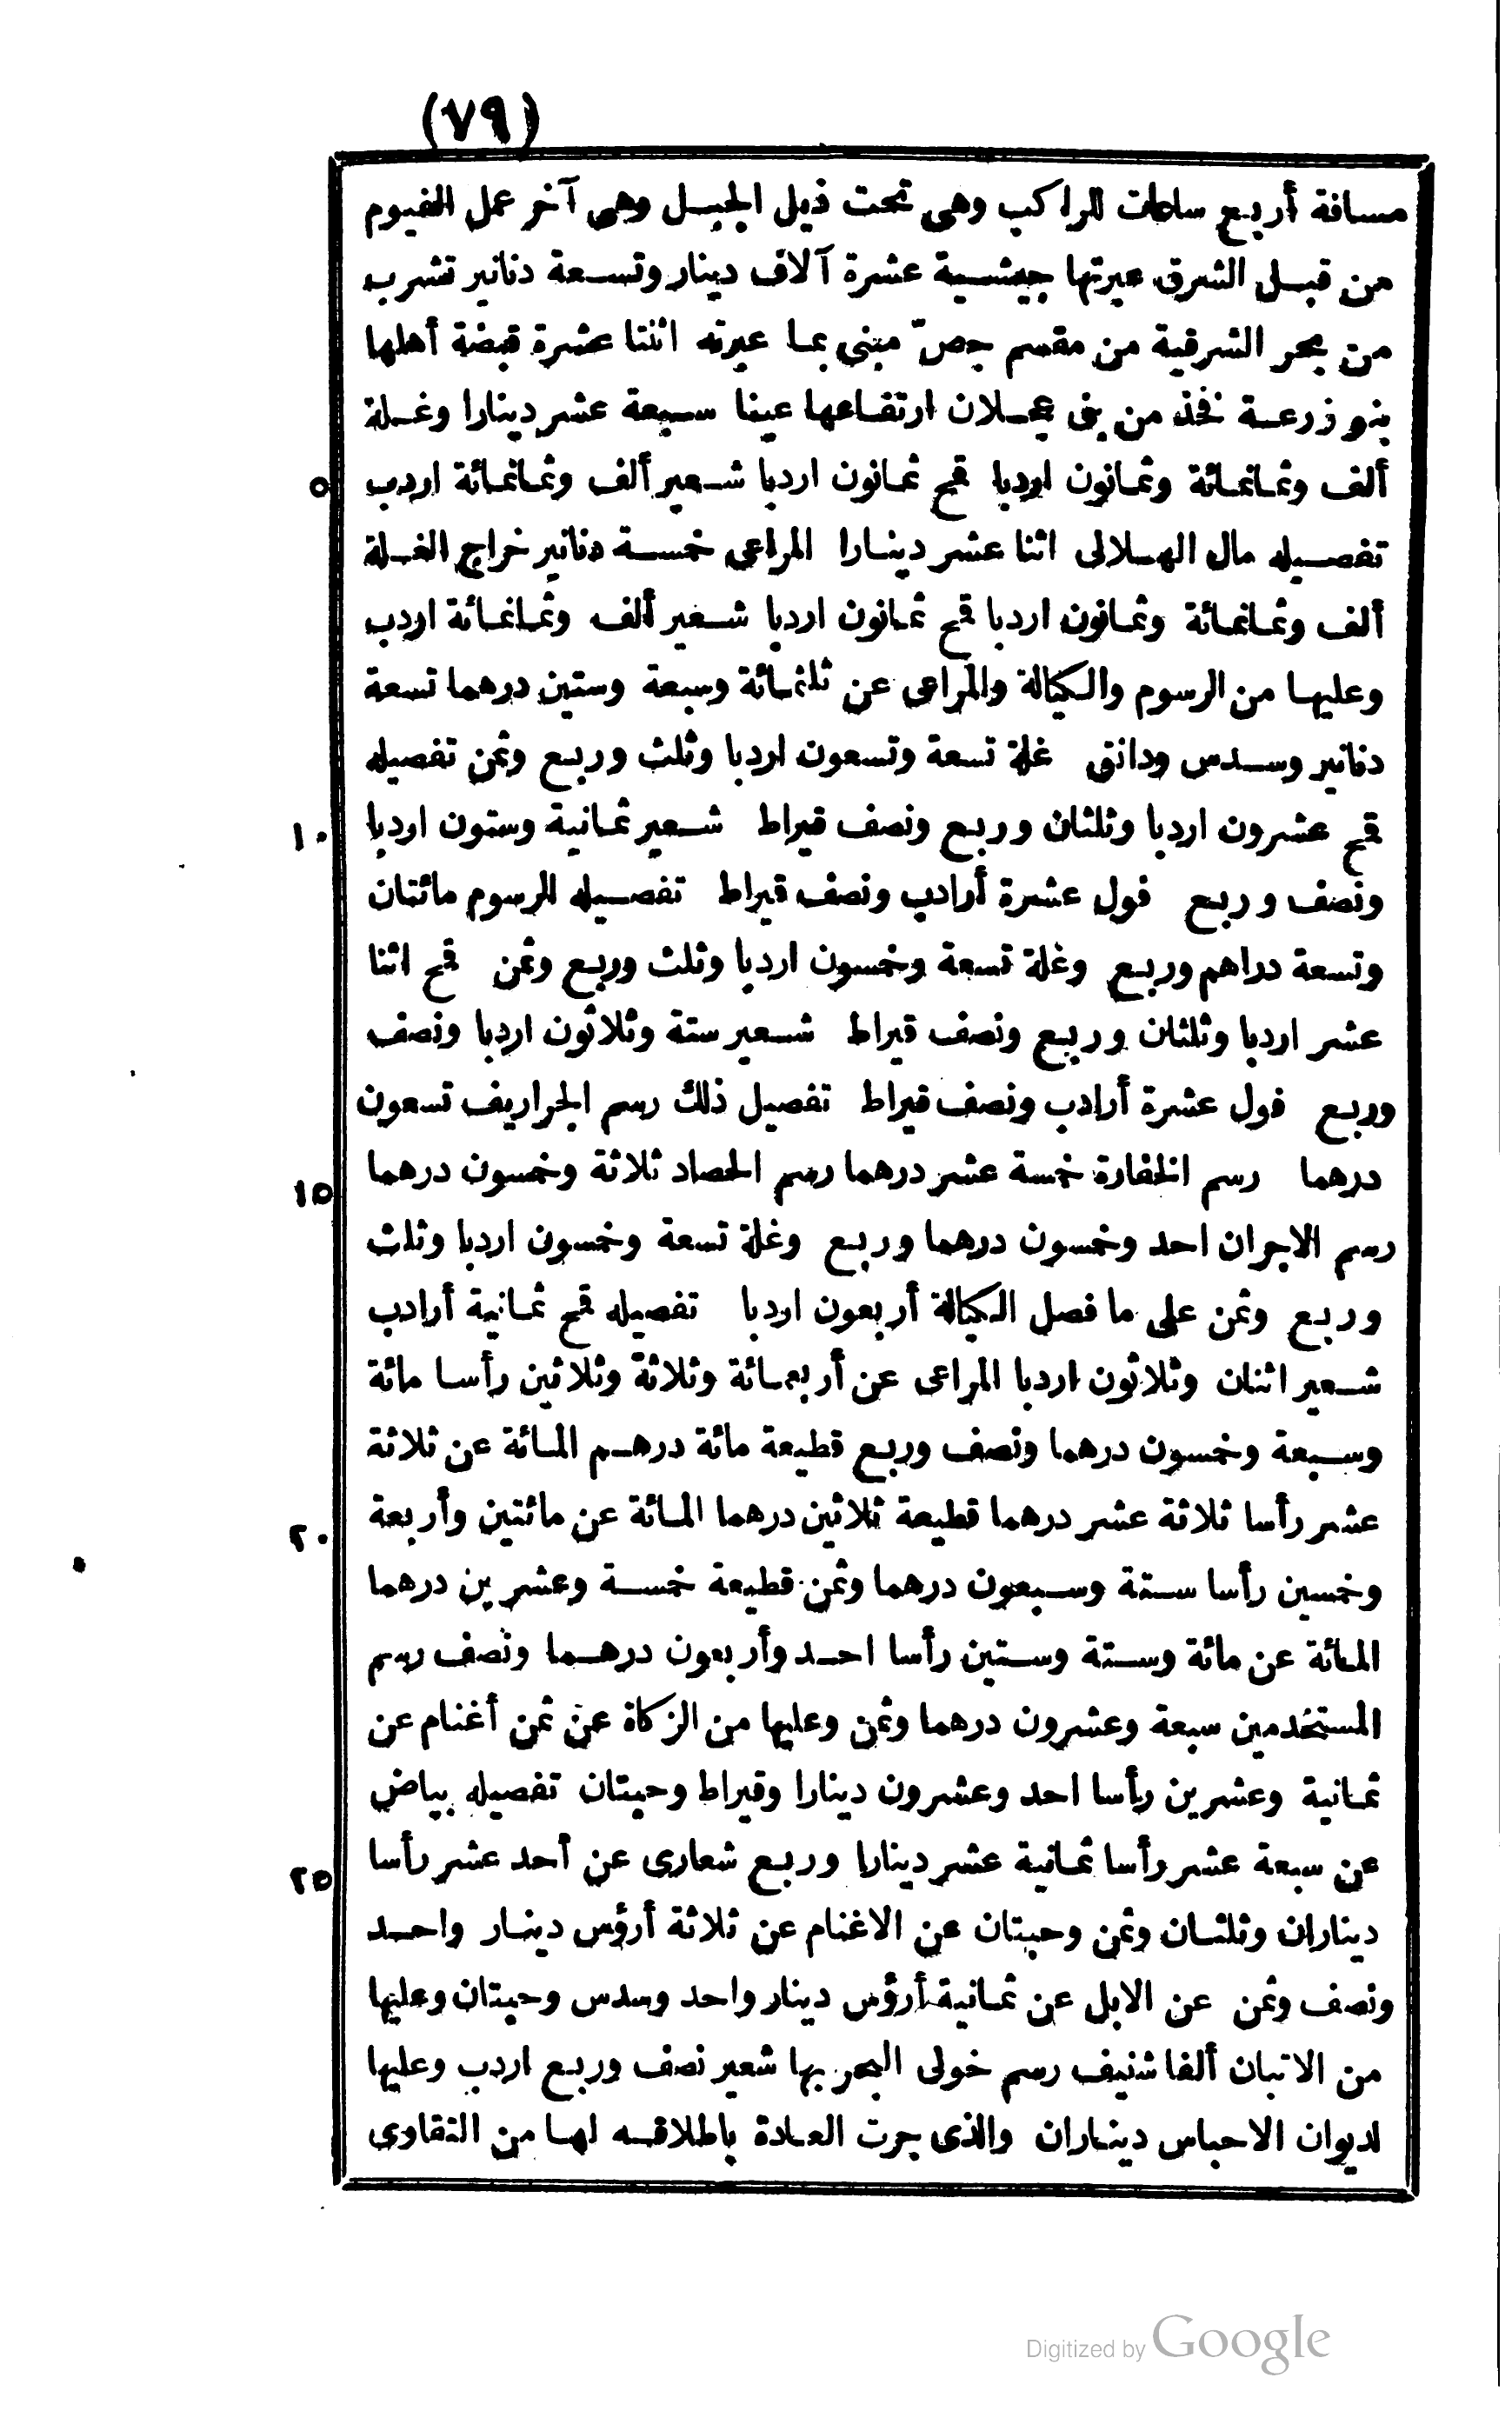 (٧٩)
مسافة أربع ساعات للراكب وهى تحت ذيل الجبل وهى آخر عمل الفيوم
من قبل الشرق عبرتها جيشية عشرة آلاف دينار وتسعة دنانير تشرب
من بحر الشرقية من مقسم جصّ مبنى بما عبرته اثنتا عشرة قبضة أهلها
بنو زرعة نخذ من بنى عجلان ارتفاعها عينا سبعة عشر دينارا وغلة
ألف وثمانمائة وثمانون اردبا قمح ثمانون اردبا شعير ألف وثمانمائة اردب ٥
تفصيله مال الهلالى اثنا عشر دينارا المراعى خمسة دنانير خراج الغلة
ألف وثمانمائة وثمانون اردبا قمح ثمانون اردبا شعير ألف وثمانمائة اردب
وعليها من الرسوم والكيالة والمراعى عن ثلثمائة وسبعة وستين درهما تسعة
دنانير وسدس ودانق غلة تسعة وتسعون اردبا وثلث وربع وثمن تفصيله
قمح عشرون اردبا وثلثان وربع ونصف قيراط شعير ثمانية وستون اردبا ١٠
ونصف وربع فول عشرة أرادب ونصف قيراط تفصيله الرسوم مائتان
وتسعة دراهم وربع وغلة تسعة وخمسون اردبا وثلث وربع وثمن قمح اثنا
عشر اردبا وثلثان وربع ونصف قيراط شعير ستة وثلاثون اردبا ونصف
وربع فول عشرة أرادب ونصف قيراط تفصيل ذلك رسم الجراريف تسعون
درهما رسم الخفارة خمسة عشر درهما رسم الحصاد ثلاثة وخمسون درهما ١٥
رسم الاجران احد وخمسون درهما وربع وغلة تسعة وخمسون اردبا وثلث
وربع وثمن على ما فصل الكيالة أربعون اردبا تفصيله قمح ثمانية أرادب
شعير اثنان وثلاثون اردبا المراعى عن أربعمائة وثلاثة وثلاثين رأسا مائة
وسبعة وخمسون درهما ونصف وربع قطيعة مائة درهم المائة عن ثلاثة
عشر رأسا ثلاثة عشر درهما قطيعة ثلاثين درهما المائة عن مائتين وأربعة ٢٠
وخمسين رأسا ستة وسبعون درهما وثمن قطيعة خمسة وعشرين درهما
المائة عن مائة وستة وستين رأسا احد وأربعون درهما ونصف رسم
المستخدمين سبعة وعشرون درهما وثمن وعليها من الزكاة عن ثمن أغنام عن
ثمانية وعشرين رأسا احد وعشرون دينارا وقيراط وحبتان تفصيله بياض
عن سبعة عشر رأسا ثمانية عشر دينارا وربع شعارى عن أحد عشر رأسا ٢٥
ديناران وثلثان وثمن وحبتان عن الاغنام عن ثلاثة أرؤس دينار واحد
ونصف وثمن عن الابل عن ثمانية أرؤس دينار واحد وسدس وحبتان وعليها
من الاتبان ألفا شنيف رسم خولى البحر بها شعير نصف وربع اردب وعليها
لديوان الاحباس ديناران والذى جرت العادة باطلاقه لها من التقاوى
Digitized by Google